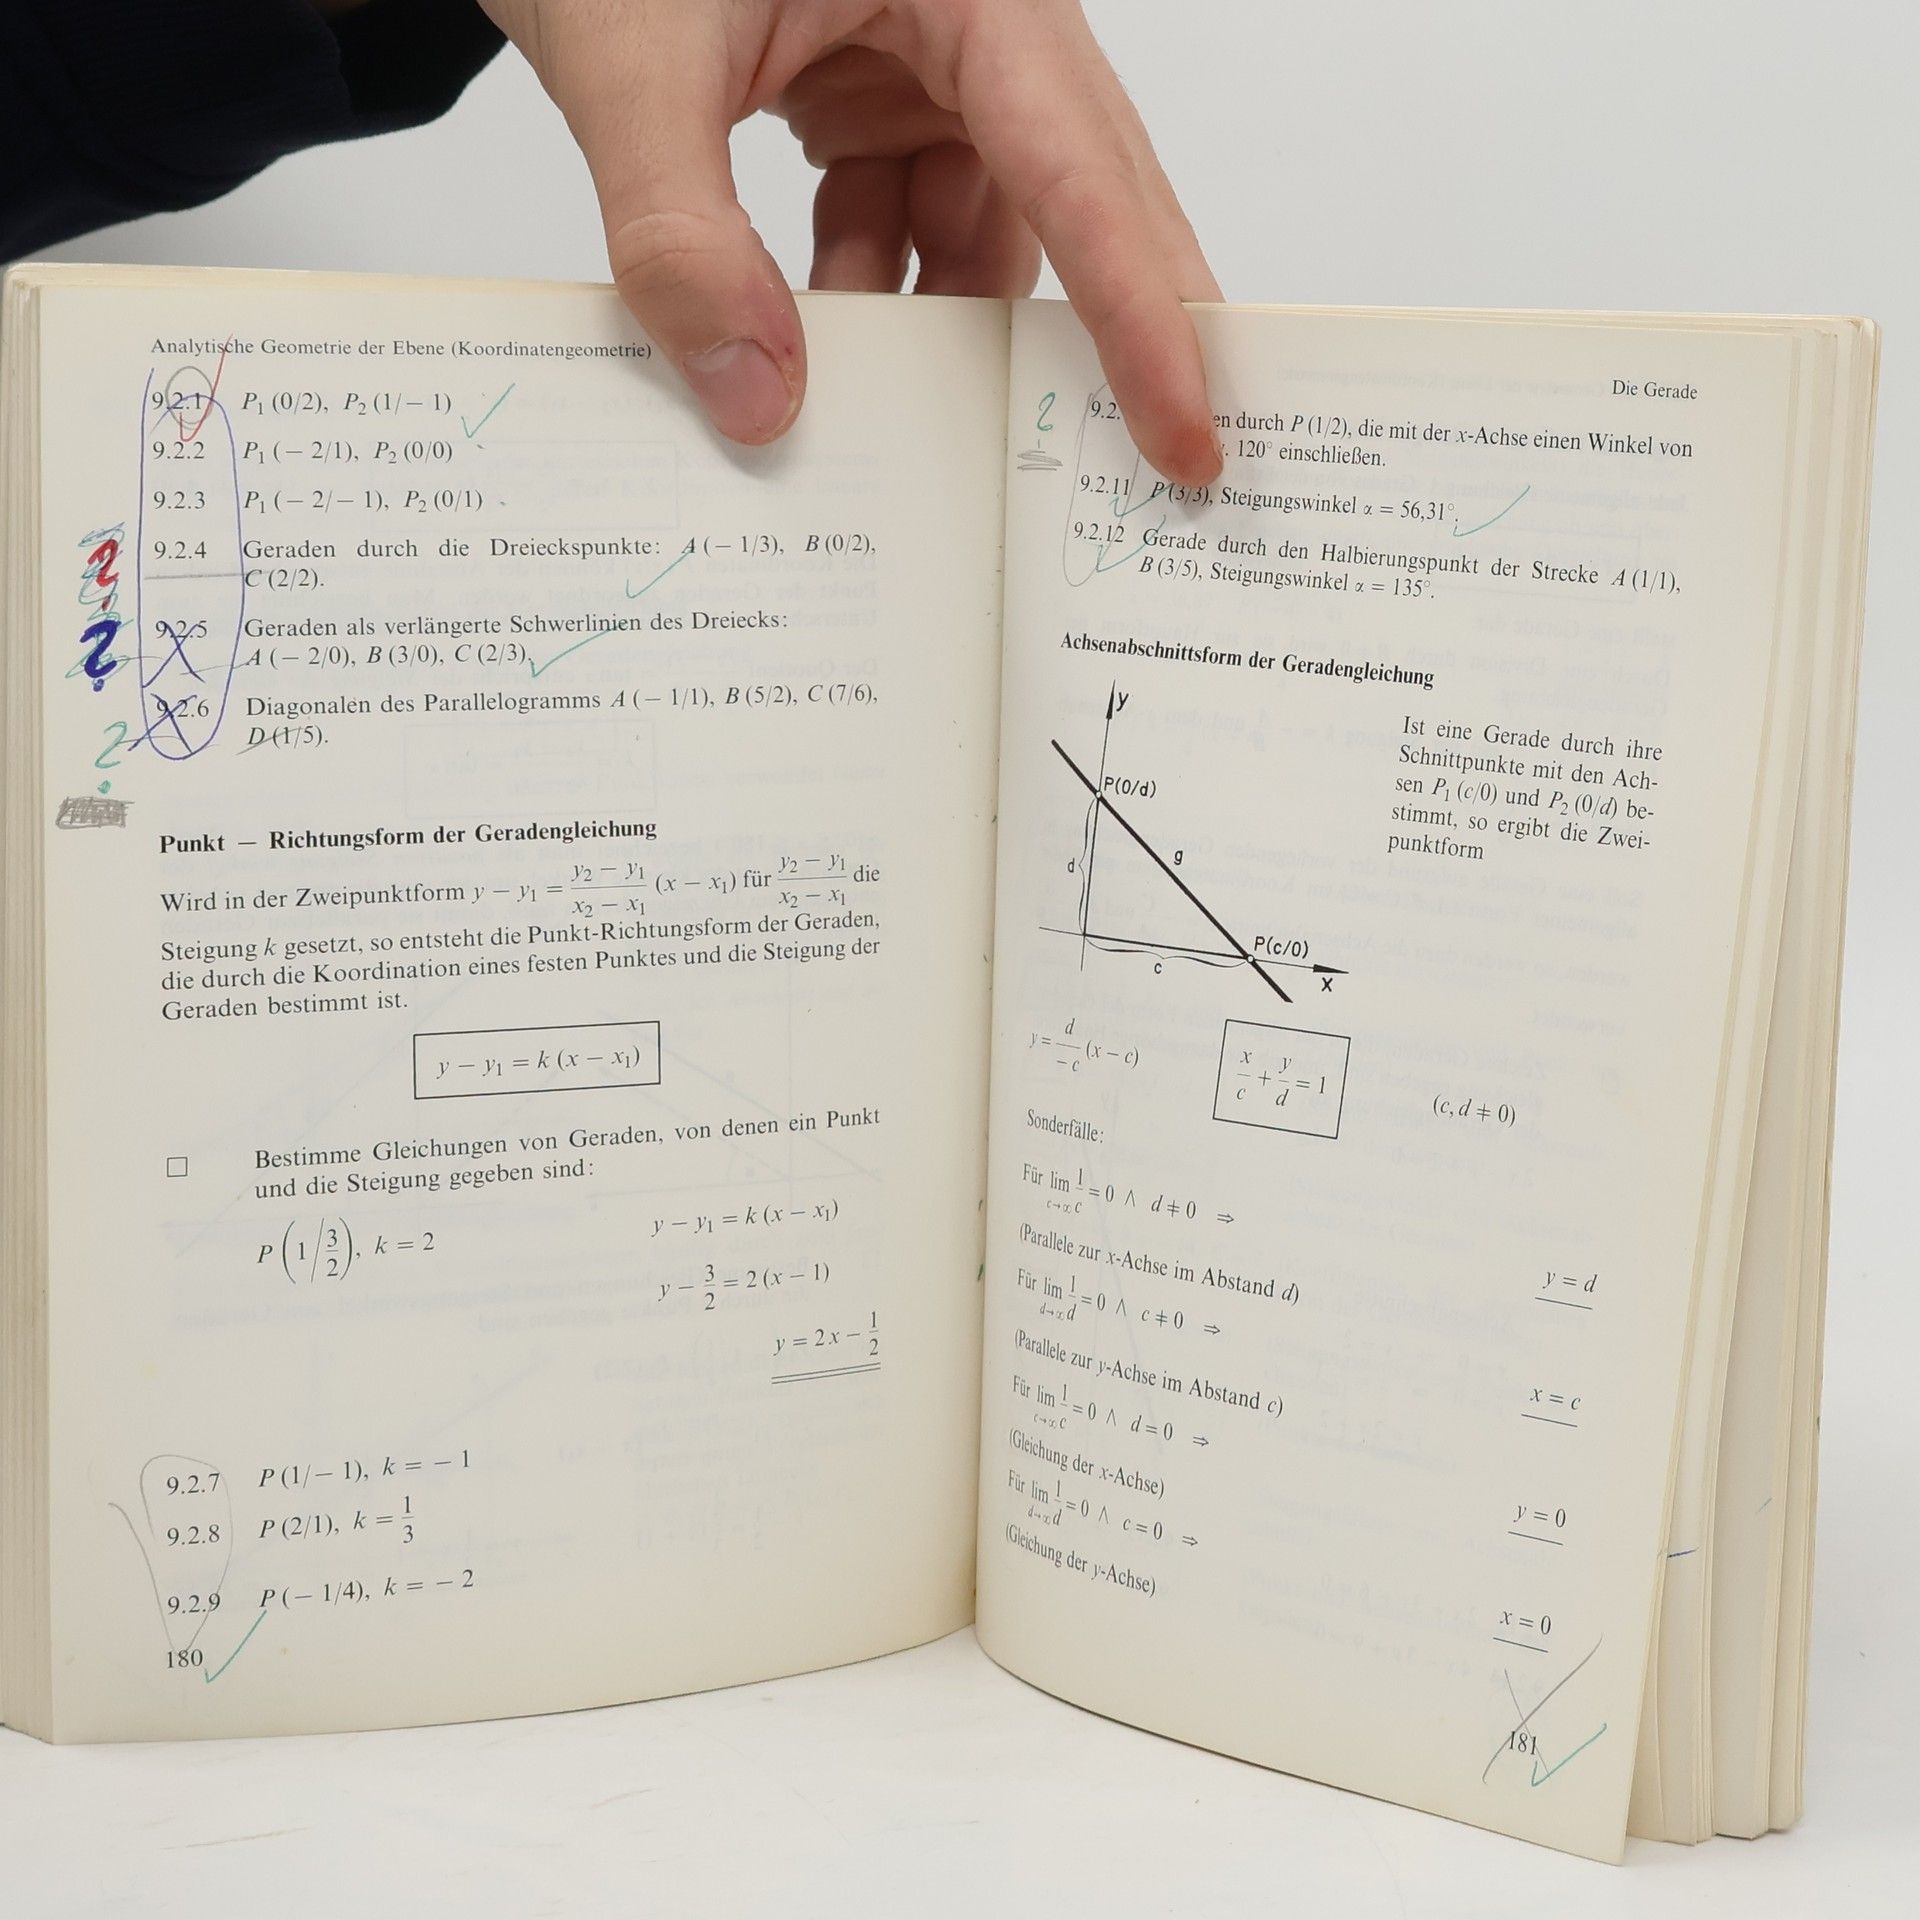 Analytische Geometrie der Ebene (Koordinatengeometrie)
9.2.1 P₁ (0/2), P₂ (1/− 1)
9.2.2 P₁ (− 2/1), P₂ (0/0)
9.2.3 P₁ (− 2/− 1), P₂ (0/1)
9.2.4 Geraden durch die Dreieckspunkte: A (− 1/3), B (0/2),
C (2/2).
9.2.5 Geraden als verlängerte Schwerlinien des Dreiecks:
A (− 2/0), B (3/0), C (2/3).
9.2.6 Diagonalen des Parallelogramms A (− 1/1), B (5/2), C (7/6),
D (1/5).
Punkt — Richtungsform der Geradengleichung
Wird in der Zweipunktform y − y₁ = (y₂ − y₁)/(x₂ − x₁) (x − x₁) für (y₂ − y₁)/(x₂ − x₁) die
Steigung k gesetzt, so entsteht die Punkt-Richtungsform der Geraden,
die durch die Koordination eines festen Punktes und die Steigung der
Geraden bestimmt ist.
y − y₁ = k (x − x₁)
□ Bestimme Gleichungen von Geraden, von denen ein Punkt
und die Steigung gegeben sind:
P (1/ 3/2), k = 2 y − y₁ = k (x − x₁)
y − 3/2 = 2 (x − 1)
y = 2x − 1/2
9.2.7 P (1/− 1), k = − 1
9.2.8 P (2/1), k = 1/3
9.2.9 P (− 1/4), k = − 2
180
Die Gerade
9.2. en durch P (1/2), die mit der x-Achse einen Winkel von
120° einschließen.
9.2.11 P (3/3), Steigungswinkel α = 56,31°.
9.2.12 Gerade durch den Halbierungspunkt der Strecke A (1/1),
B (3/5), Steigungswinkel α = 135°.
Achsenabschnittsform der Geradengleichung
y
P(0/d)
g
d
P(c/0)
c
x
Ist eine Gerade durch ihre
Schnittpunkte mit den Ach-
sen P₁ (c/0) und P₂ (0/d) be-
stimmt, so ergibt die Zwei-
punktform
y = d/−c (x − c) x/c + y/d = 1 (c, d ≠ 0)
Sonderfälle:
Für lim c→∞ 1/c = 0 ∧ d ≠ 0 ⇒
(Parallele zur x-Achse im Abstand d) y = d
Für lim d→∞ 1/d = 0 ∧ c ≠ 0 ⇒
(Parallele zur y-Achse im Abstand c) x = c
Für lim c→∞ 1/c = 0 ∧ d = 0 ⇒
(Gleichung der x-Achse) y = 0
Für lim d→∞ 1/d = 0 ∧ c = 0 ⇒
(Gleichung der y-Achse) x = 0
181